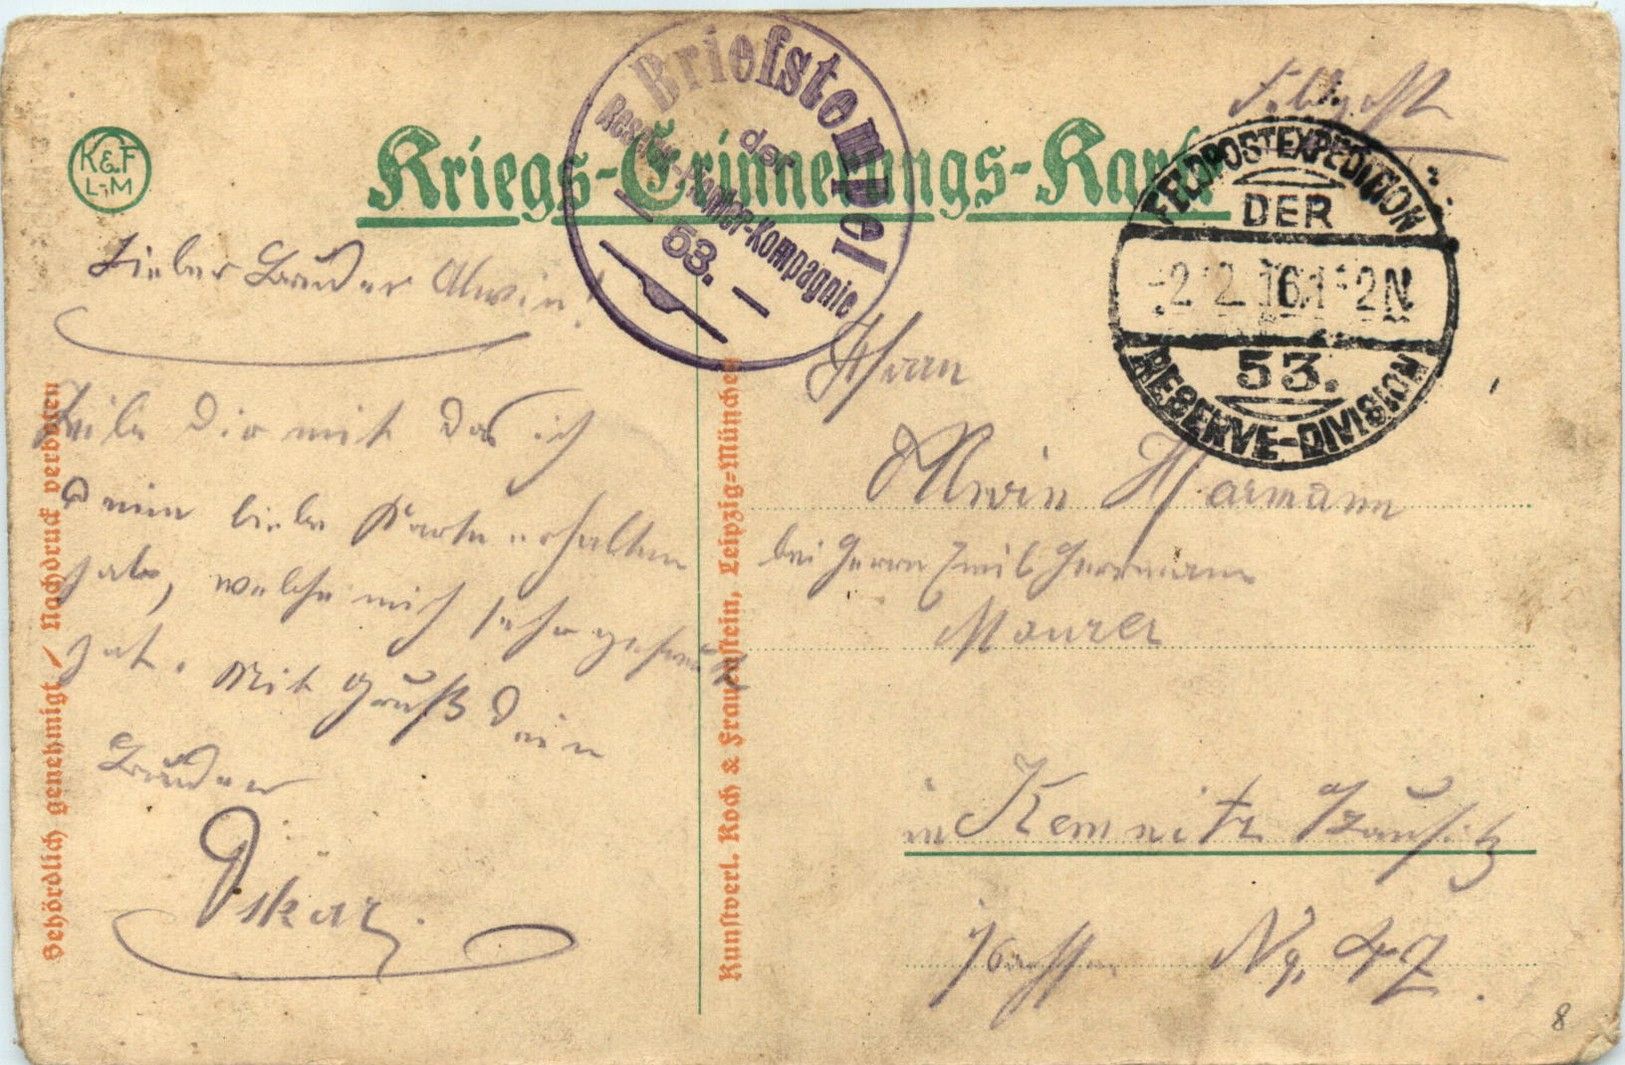 Feldpost
K&F
L-M
Kriegs-Erinnerungs-Karte
Briefstempel
der
Reserve-Pionier-Kompagnie
53.
FELDPOSTEXPEDITION
DER
-2.2.16.1-2N
53.
RESERVE-DIVISION
Lieber Bruder Alwin!
Teile Dir mit das ich
Deine liebe Karte erhalten
habe, welche mich sehr gefreut
hat. Mit Gruß Dein
Bruder
Oskar.
Behördlich genehmigt / Nachdruck verboten
Kunstverl. Koch & Frauenstein, Leipzig=München
Alwin
bei Herrn Emil Herrmann
Maurer
in Kemnitz Lausitz
Sachsen Nr. 47.
8